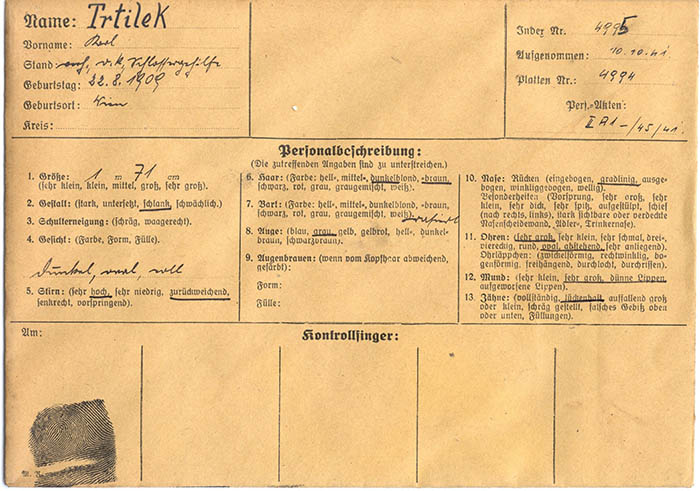 Name: Trtilek
Vorname: Karl
Stand: verh., v. k., Schlossergehilfe
Geburtstag: 22.8.1909
Geburtsort: Wien
Kreis:
Index Nr. 4995
Aufgenommen: 10.10.41
Platten Nr.: 4994
Pers.-Akten:
II A1-/45/41.
Personalbeschreibung:
(Die zutreffenden Angaben sind zu unterstreichen.)
1. Größe: 1 m 71 cm
(sehr klein, klein, mittel, groß, sehr groß).
2. Gestalt: (stark, untersetzt, schlank, schwächlich).
3. Schulterneigung: (schräg, waagerecht).
4. Gesicht: (Farbe, Form, Fülle).
dunkel, oval, voll
5. Stirn: (sehr hoch, sehr niedrig, zurückweichend,
senkrecht, vorspringend).
6. Haar: (Farbe: hell-, mittel-, dunkelblond, -braun,
schwarz, rot, grau, graugemischt, weiß).
7. Bart: (Farbe: hell-, mittel-, dunkelblond, -braun,
schwarz, rot, grau, graugemischt, weiß)
8. Auge: (blau, grau, gelb, gelbrot, hell-, dunkel-
braun, schwarzbraun).
9. Augenbrauen: (wenn vom Kopfhaar abweichend,
gefärbt):
Form:
Fülle:
10. Nase: Rücken (eingebogen, gradlinig, ausge-
bogen, winkliggebogen, wellig).
Besonderheiten: (Vorsprung, sehr groß, sehr
klein, sehr dick, sehr spitz, aufgestülpt, schief
(nach rechts, links), stark sichtbare oder verdeckte
Nasenscheidewand, Adler-, Trinkernase).
11. Ohren: (sehr groß, sehr klein, sehr schmal, drei-,
viereckig, rund, oval, abstehend, sehr anliegend).
Ohrläppchen: (zwickelförmig, rechtwinklig, bo-
genförmig, freihängend, durchlocht, durchrissen).
12. Mund: (sehr klein, sehr groß, dünne Lippen,
aufgeworfene Lippen).
13. Zähne: (vollständig, lückenhaft, auffallend groß
oder klein, schräg gestellt, falsches Gebiß oben
oder unten, Füllungen).
Am:
Kontrollfinger: